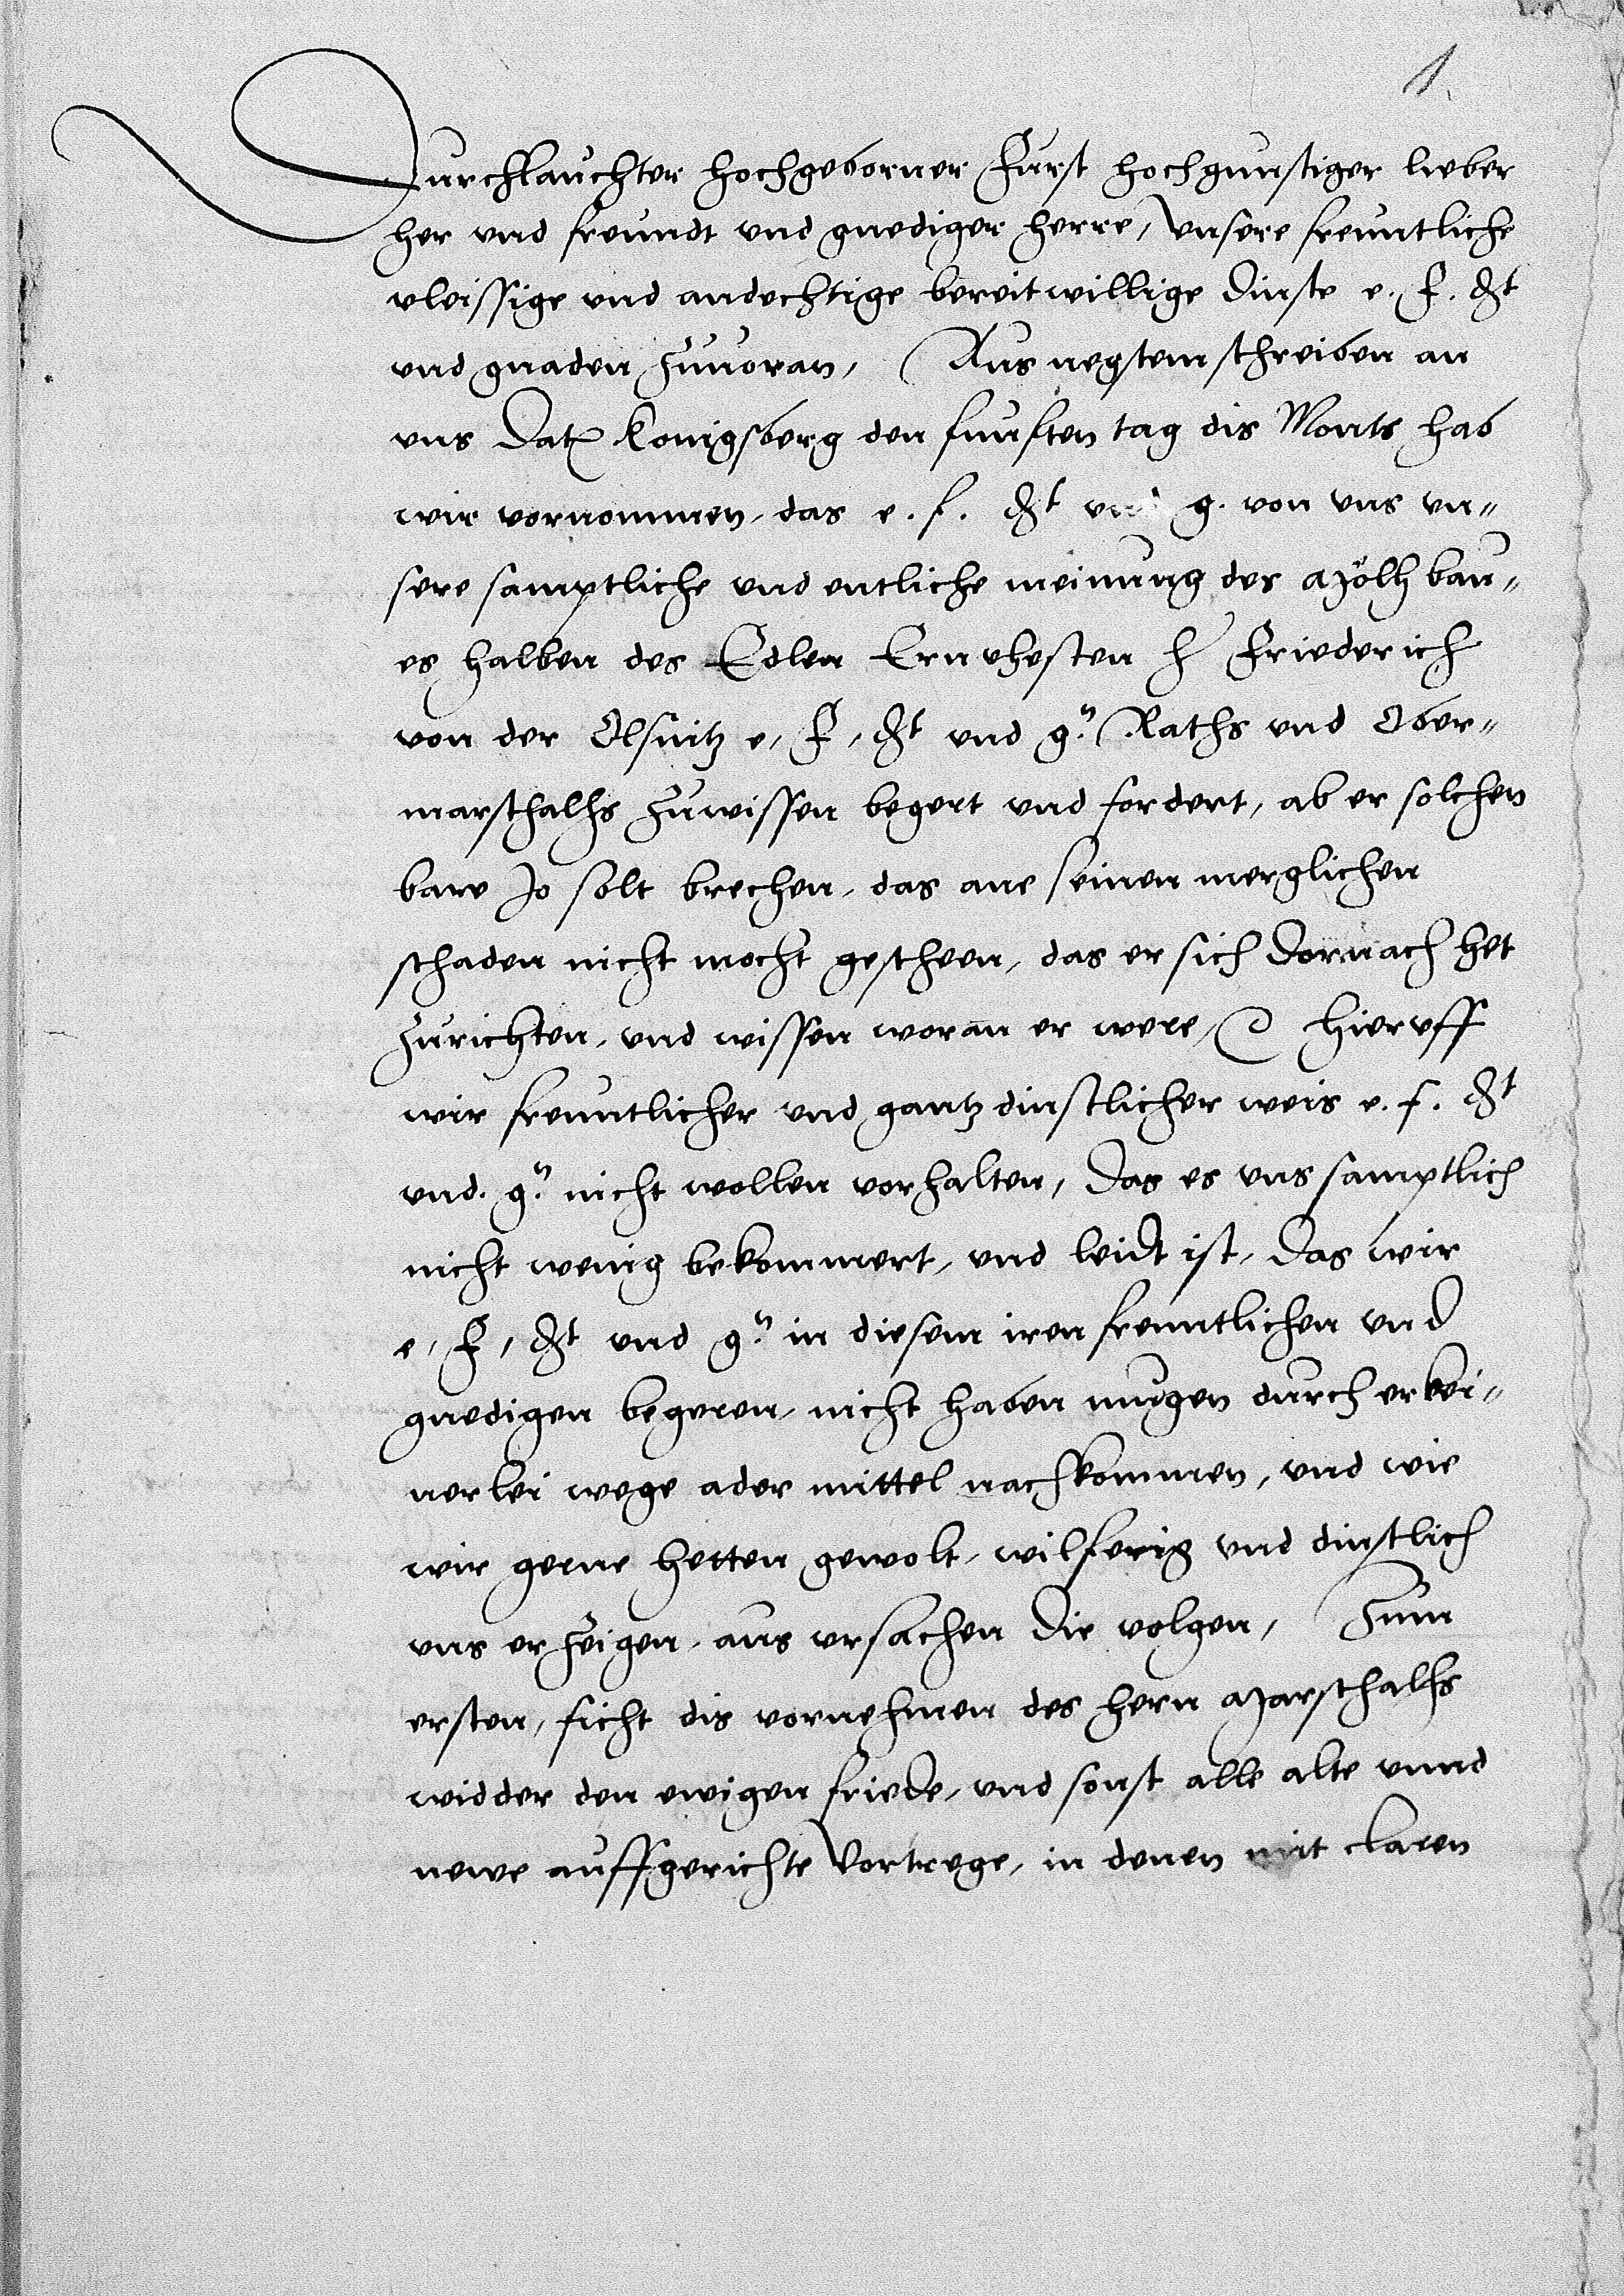 1
Durchlauchter hochgeborner Furst hochgunstiger lieber
her vnd freundt vnd gnediger herre, Vnsere freuntliche
vleissige vnd andechtige bereitwillige dinste e. F. Dt
vnd gnaden zuuoran, Aus negstem schreiben an
vns Dat Konigsberg den funften tag dis Monts hab
wir vornommen, das e. f. Dt vnd g. von vns vn„
sere samptliche vnd entliche meinung des Mölh bau„
es halben des Edlen Ernvhesten h Friederich
von der Olsnitz e, F, Dt vnd gn. Raths vnd Ober„
marschalhs zuwissen begert vnd fordert, ab er solchen
bawe Jo solt brechen, das ane seinen merglichen
schaden nicht mocht gescheen, das er sich dornach het
zurichten, vnd wissen woran er were, hieruff
wir freuntlicher vnd gantz dinstlicher weis e. f. Dt
vnd. gn. nicht wollen vorhalten, Das es vns samptlich
nicht wenig bekommert, vnd leidt ist, das wir
e, F, Dt vnd gn. in diesem iren freuntlichen vnd
gnedigen begeren, nicht haben mugen durch erkei„
nerlei wege ader mittel nachkommen, vnd wie
wir gerne hetten gewolt, wilferig vnd dinstlich
vns erzeigen, aus vrsachen die volgen, Zum
ersten, ficht dis vornehmen des hern Marschalhs
widder den ewigen friede, vnd sonst alle alte vnnd
newe auffgerichte Vortrege, in denen mit claren